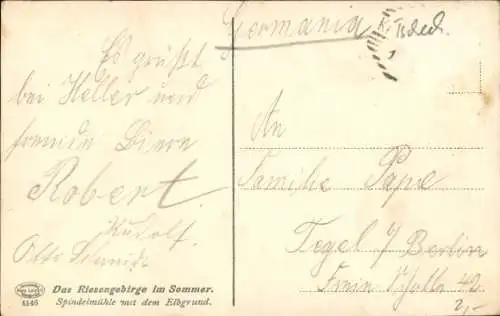 Germania
K. Tschech.
1
Es grüßt
bei Heller und
Robert.
Rudolf.
Otto Schmidt
An
Familie Pape
Tegel / Berlin
42
2,-
Das Riesengebirge im Sommer.
Spindelmühle mit dem Elbgrund.